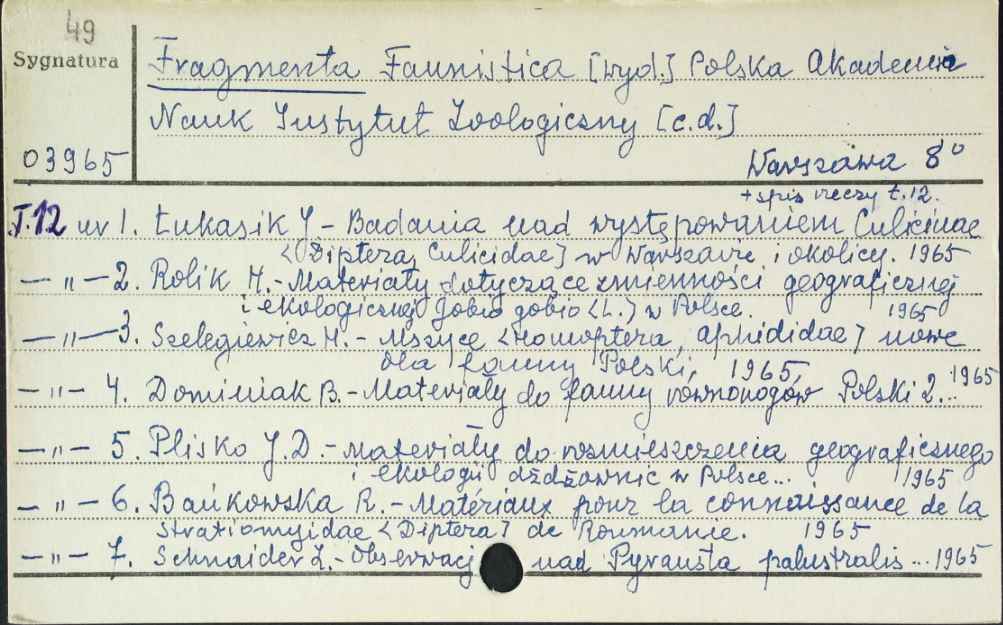 49
Sygnatura
Fragmenta Faunistica [wyd.] Polska Akademia
Nauk Instytut Zoologiczny [c.d.]
03965
Warszawa 8°
+ spis rzeczy t.12.
T.12 nr 1. Łukasik J. - Badania nad występowaniem Culicinae
<Diptera, Culicidae] w Warszawie i okolicy. 1965
— „ — 2. Rolik H. - Materiały dotyczące zmienności geograficznej
i ekologicznej Gobio gobio <L.] w Polsce. 1965
— „ — 3. Szelegiewicz H. - Mszyce <Homoptera, Aphididae] nowe
dla fauny Polski, 1965
— „ — 4. Dominiak B. - Materiały do fauny równonogów Polski 2... 1965
— „ — 5. Plisko J.D. - Materiały do rozmieszczenia geograficznego
i ekologii dżdżownic w Polsce... 1965
— „ — 6. Bańkowska R. - Matériaux pour la connaissance de la
Stratiomyidae <Diptera] de Roumanie. 1965
— „ — 7. Schnaider Z. - Obserwacj nad Pyrausta palustralis... 1965